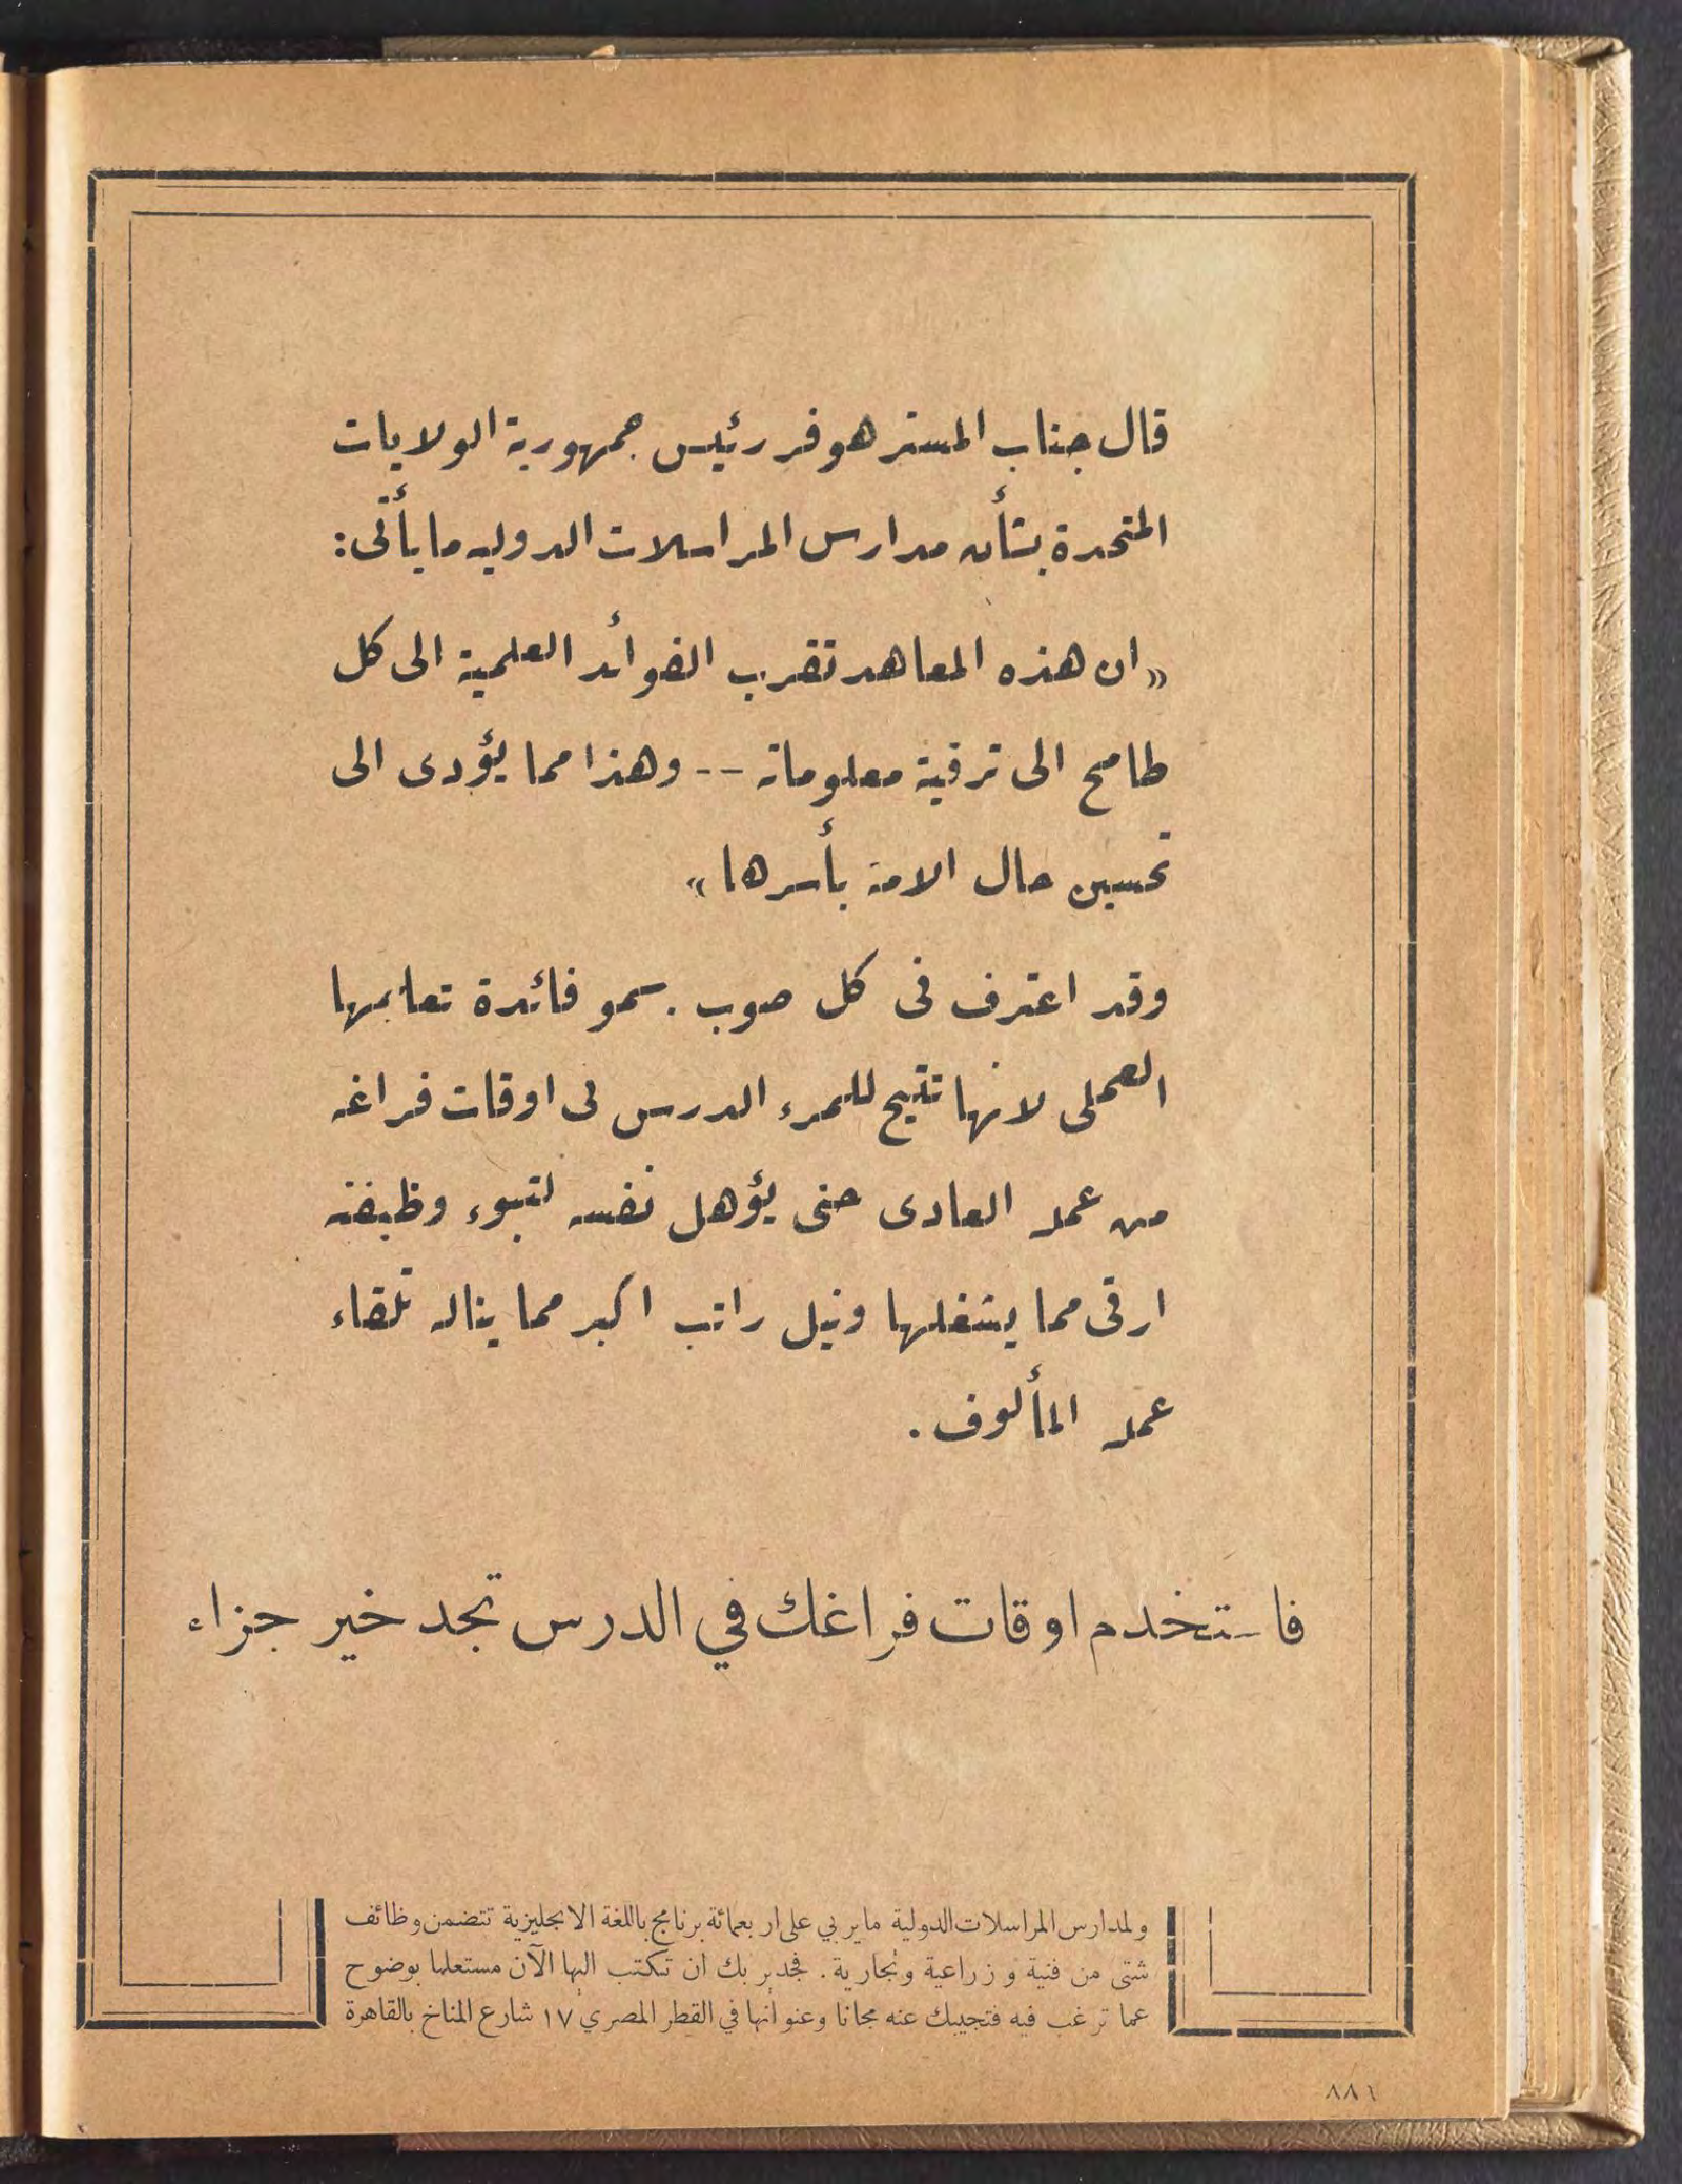 قال جناب المستر هوفر رئيس جمهورية الولايات
المتحدة بشأن مدارس المراسلات الدولية ما يأتى:
«ان هذه المعاهد تقرب الفوائد العلمية الى كل
طامح الى ترقية معلوماته -- وهذا مما يؤدى الى
تحسين حال الامة بأسرها»
وقد اعترف فى كل صوب بسمو فائدة تعليمها
العملى لانها تتيح للمرء الدرس فى اوقات فراغه
من عمله العادى حتى يؤهل نفسه لتبوء وظيفة
ارقى مما يشغلها ونيل راتب اكبر مما يناله تلقاء
عمله المألوف .
فاستخدم اوقات فراغك في الدرس تجد خير جزاء
ولمدارس المراسلات الدولية ما يربي على اربعمائة برنامج باللغة الانجليزية تتضمن وظائف
شتى من فنية و زراعية وتجارية . فجدير بك ان تكتب اليها الآن مستعلما بوضوح
عما ترغب فيه فتجيبك عنه مجانا وعنوانها في القطر المصري ١٧ شارع المناخ بالقاهرة
٨٨١